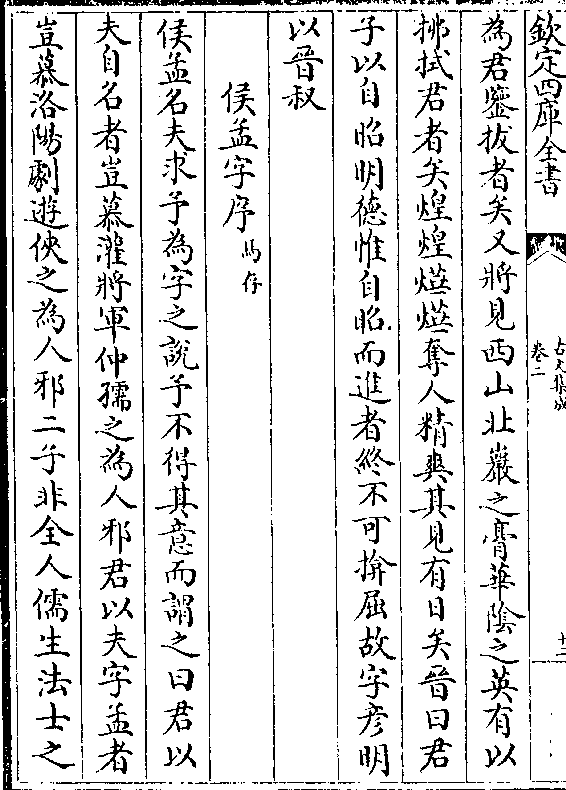 欽定四庫全書
古文集成
卷二
十二
為君鑒拔者矣又將見西山北巖之膏華隂之英有以
拂拭君者矣煌煌㷸㷸奪人精爽其見有日矣晉曰君
子以自昭明德惟自昭而進者終不可揜屈故字彦明
以晉叔
侯孟字序 馬存
侯孟名夫求予為字之說予不得其意而謂之曰君以
夫自名者豈慕灌將軍仲孺之為人邪君以夫字孟者
豈慕洛陽劇遊俠之為人邪二子非全人儒生法士之